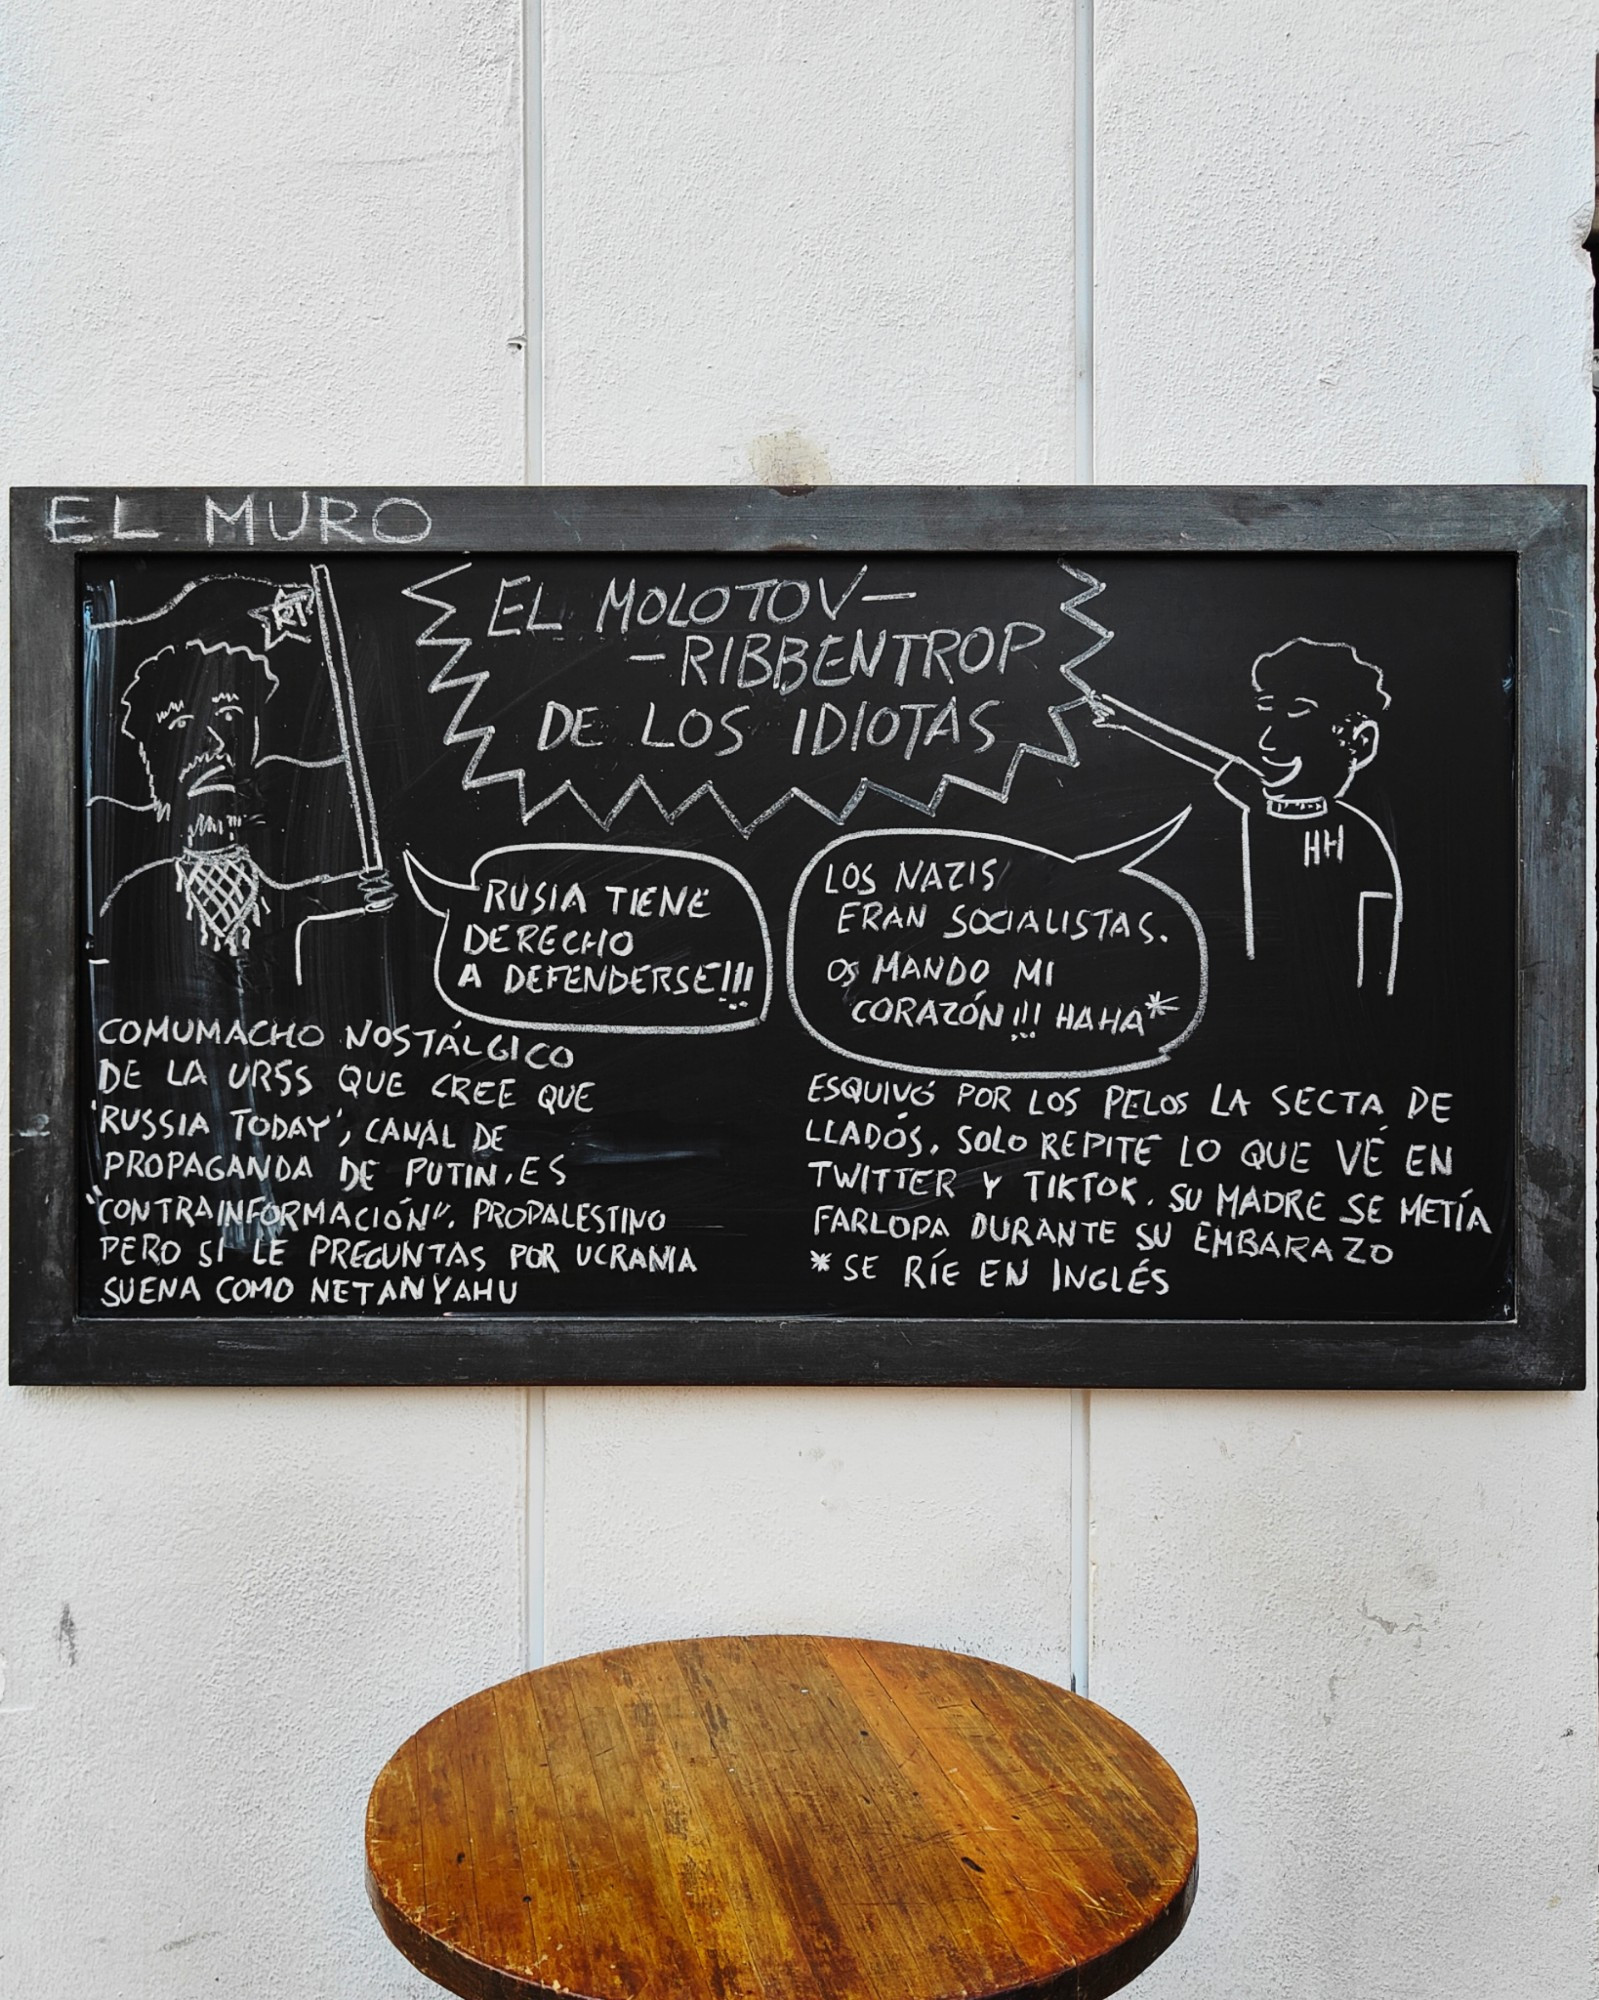 EL MURO
RT
EL MOLOTOV-
-RIBBENTROP
DE LOS IDIOTAS
RUSIA TIENE
DERECHO
A DEFENDERSE!!!
COMUMACHO NOSTÁLGICO
DE LA URSS QUE CREE QUE
'RUSSIA TODAY', CANAL DE
PROPAGANDA DE PUTIN, ES
"CONTRAINFORMACIÓN". PROPALESTINO
PERO SI LE PREGUNTAS POR UCRANIA
SUENA COMO NETANYAHU
HH
LOS NAZIS
ERAN SOCIALISTAS.
OS MANDO MI
CORAZÓN!!! HAHA*
ESQUIVÓ POR LOS PELOS LA SECTA DE
LLADÓS, SOLO REPITE LO QUE VÉ EN
TWITTER Y TIKTOK. SU MADRE SE METÍA
FARLOPA DURANTE SU EMBARAZO
*SE RÍE EN INGLÉS